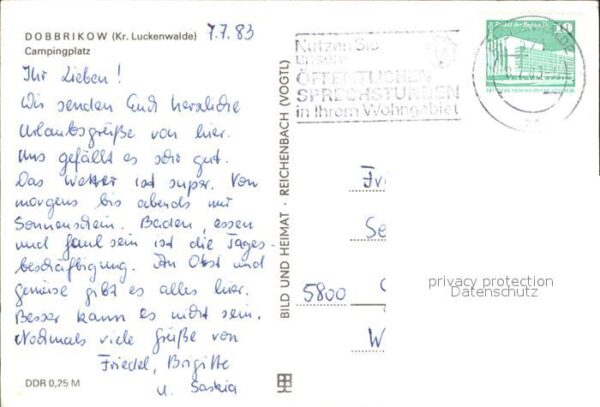 DOBBRIKOW (Kr. Luckenwalde)
Campingplatz
7.7.83
Ihr Lieben!
Wir senden Euch herzliche
Urlaubsgrüße von hier.
Uns gefällt es sehr gut.
Das Wetter ist super. Von
morgens bis abends nur
Sonnenschein. Baden, essen
und faul sein ist die Tages-
beschäftigung. An Obst und
gemüse gibt es alles hier.
Besser kann es nicht sein.
Nochmals viele Grüße von
Friedel, Birgitte
u. Saskia
DDR 0,25 M
BILD UND HEIMAT · REICHENBACH (VOGTL)
Nutzen Sie
unsere
ÖFFENTLICHEN
SPRECHSTUNDEN
in Ihrem Wohngebiet
10
Fr
Se
5800 G
W
privacy protection
Datenschutz